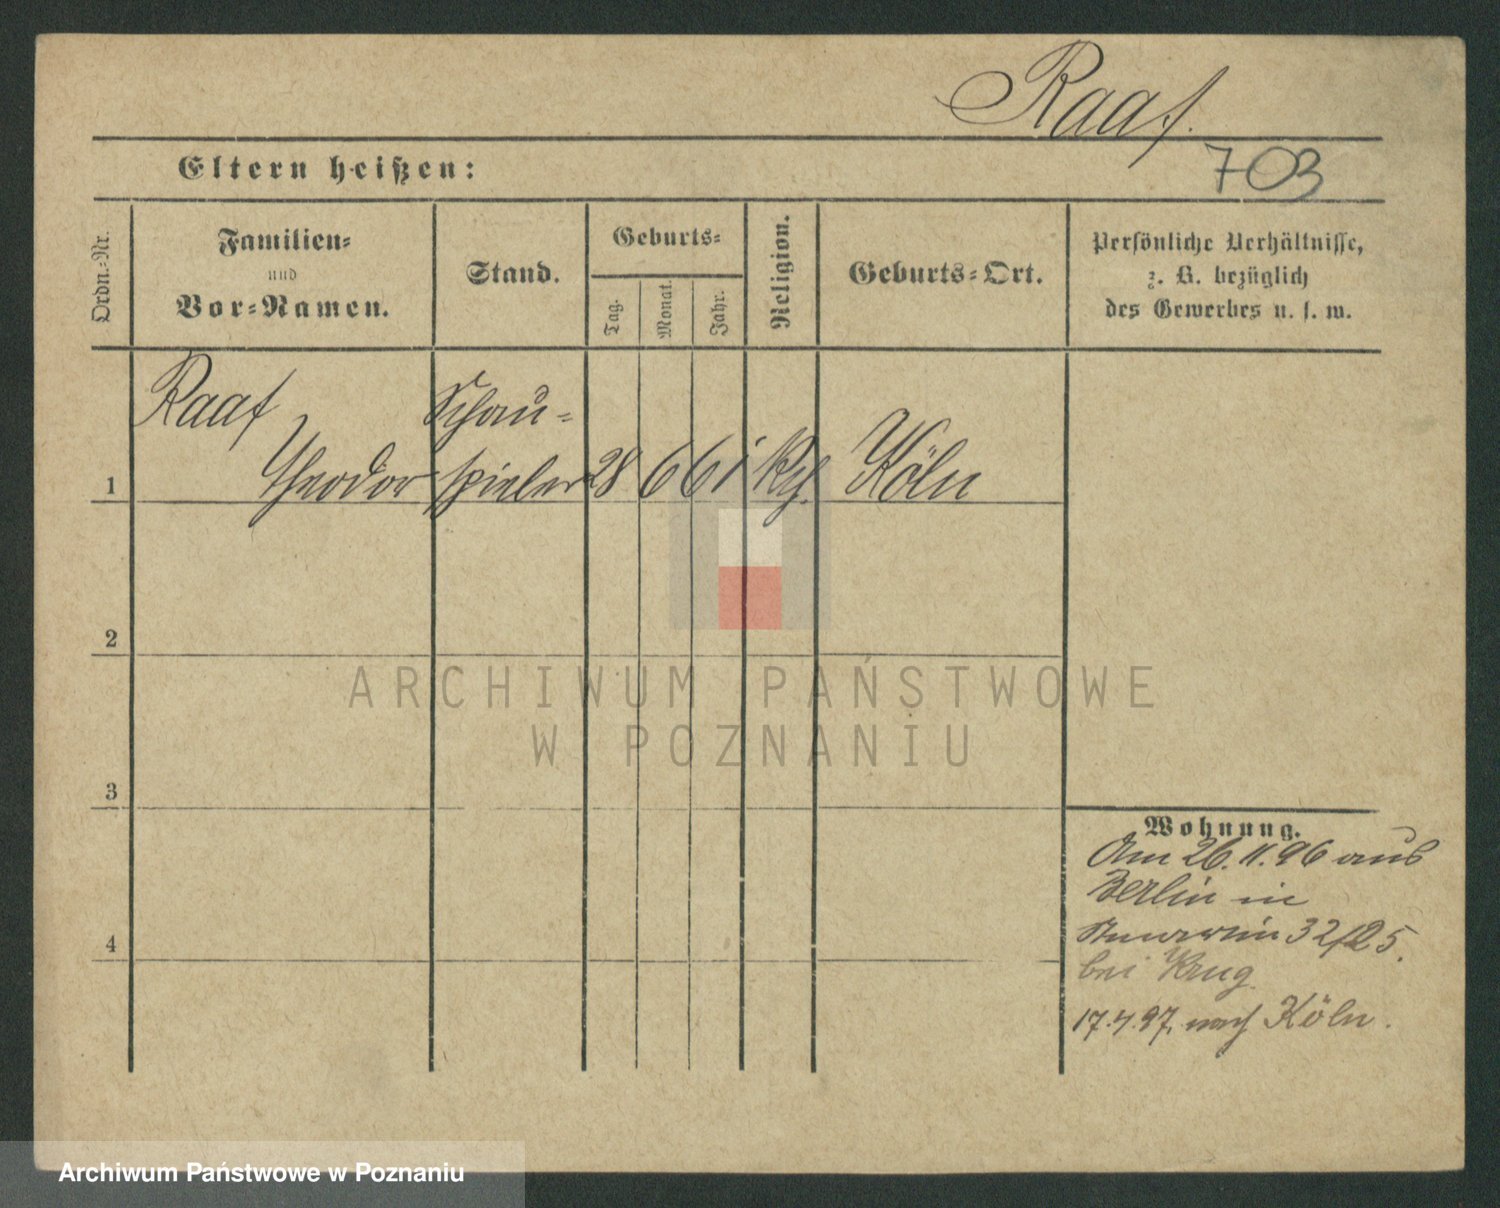 Raaf.
Eltern heißen:
703
Ordn.-Nr.
Familien-
und
Vor-Namen.
Stand.
Geburts-
Tag.
Monat.
Jahr.
Religion.
Geburts-Ort.
Persönliche Verhältnisse,
z. B. bezüglich
des Gewerbes u. s. w.
Raaf Schau-
1 Theodor spieler 28 6 61 Köln
2
3
4
Wohnung.
Am 26. 11. 96 aus
Berlin in
32/25.
bei Krug
17.4.97. nach Köln.
ARCHIWUM PAŃSTWOWE
W POZNANIU
Archiwum Państwowe w Poznaniu